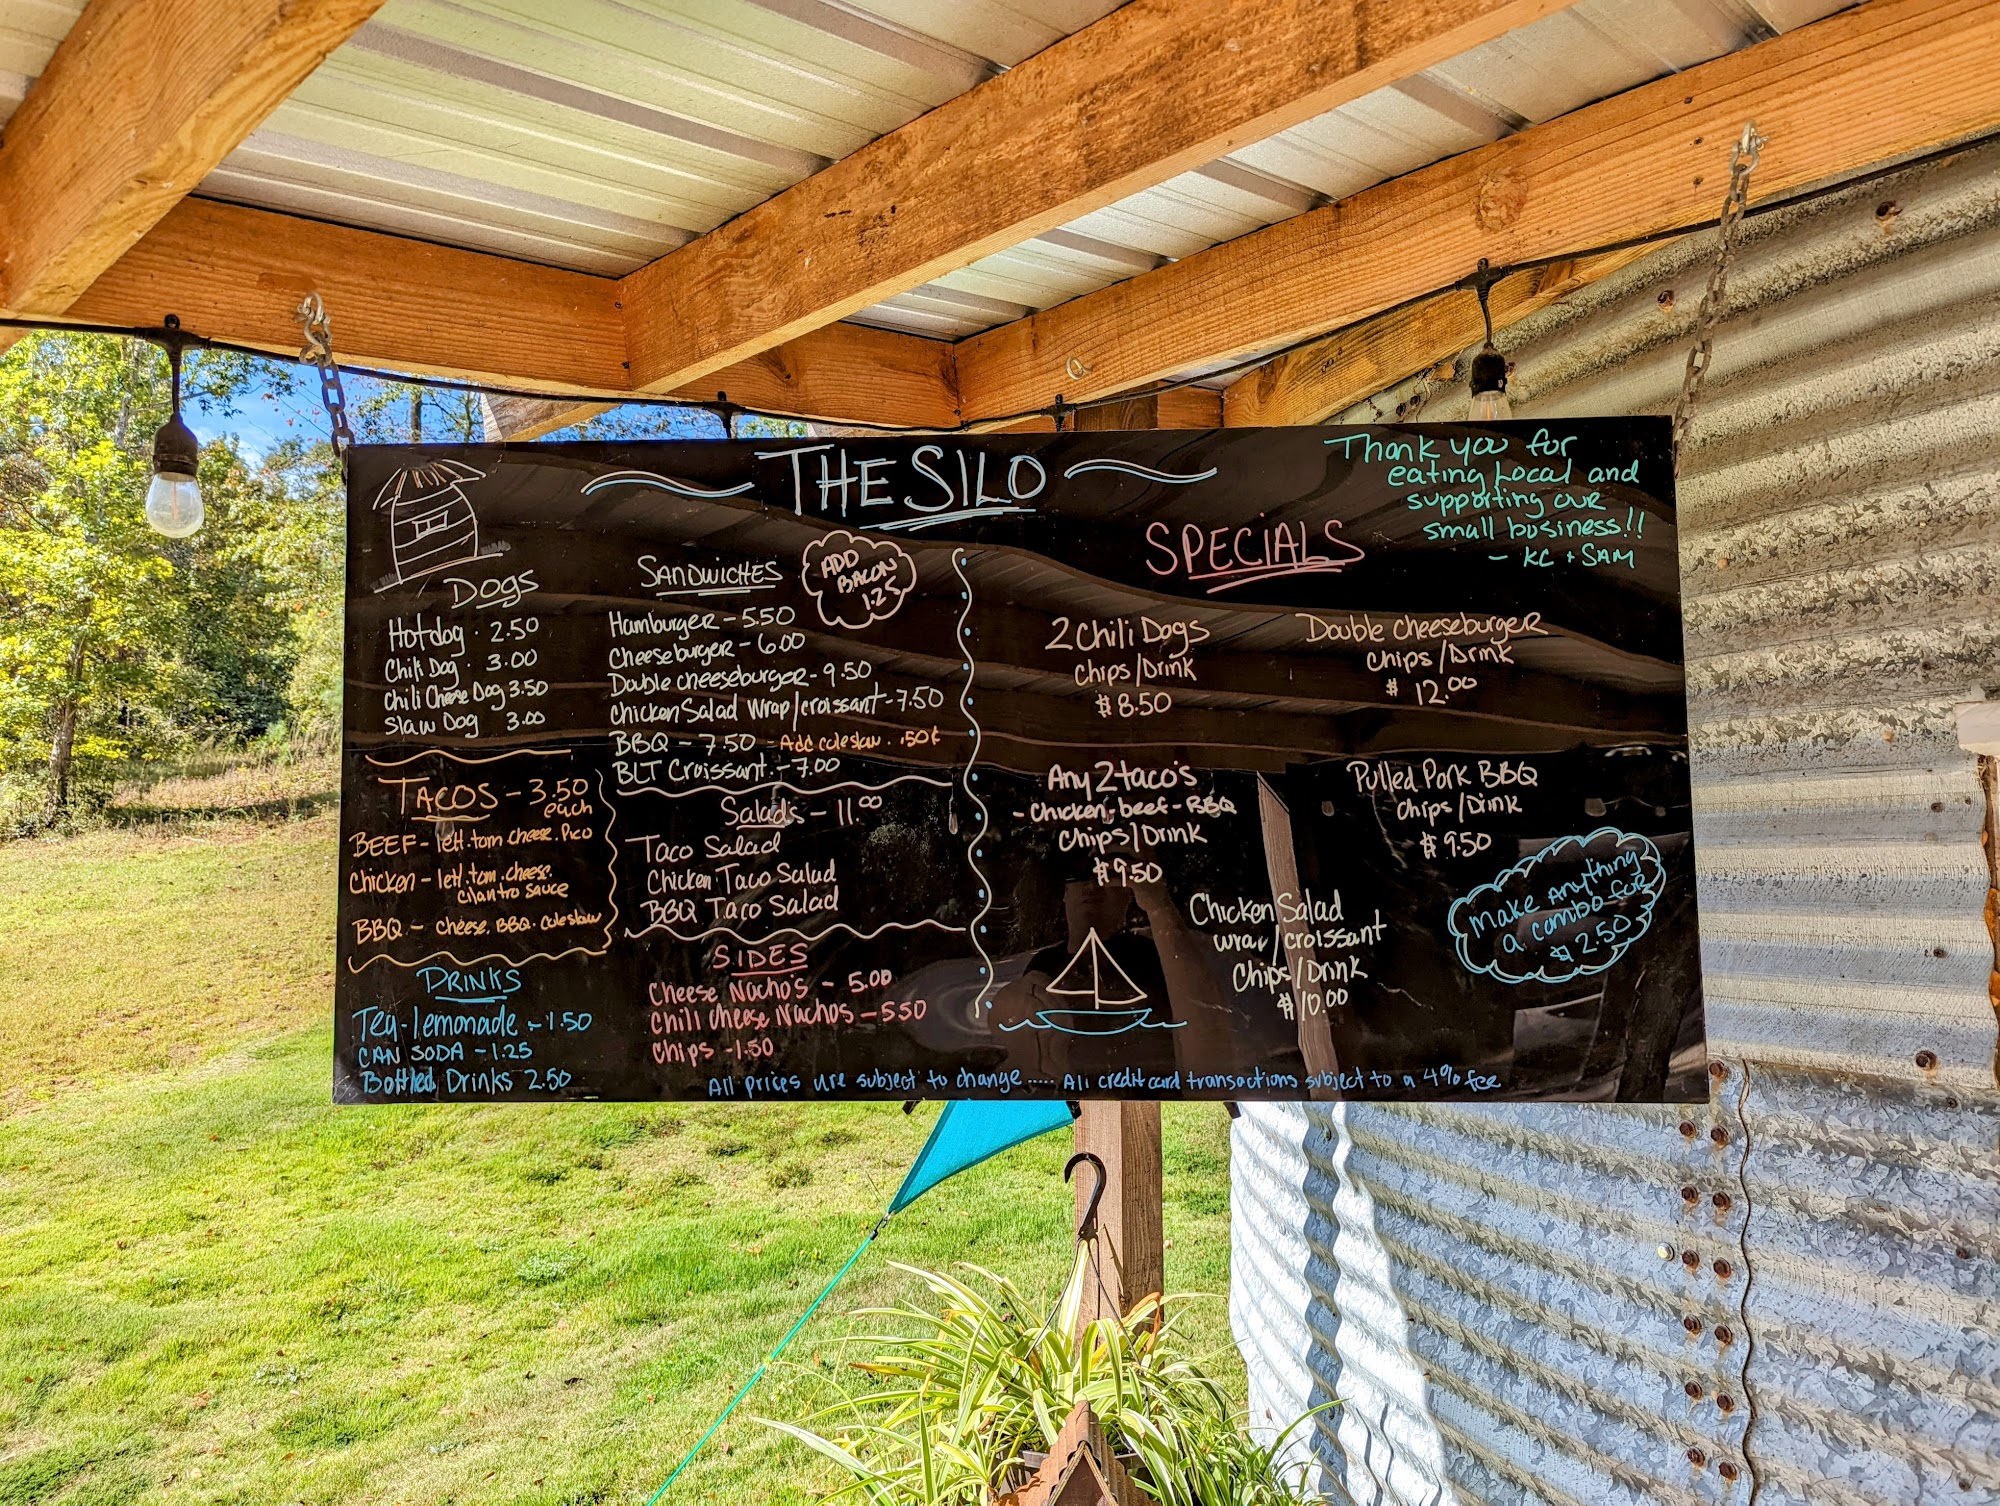 THE SILO
Thank you for
eating Local and
supporting our
small business!!
- KC + SAM
DOGS
Hotdog · 2.50
Chili Dog · 3.00
Chili Cheese Dog 3.50
Slaw Dog 3.00
TACOS - 3.50
each
BEEF - lett. tom cheese. Pico
Chicken - lett. tom. cheese.
cilantro sauce
BBQ - cheese. BBQ. coleslaw
DRINKS
Tea - lemonade - 1.50
CAN SODA - 1.25
Bottled Drinks 2.50
SANDWICHES
ADD
BACON
1.25
Hamburger - 5.50
Cheeseburger - 6.00
Double cheeseburger - 9.50
Chicken Salad Wrap/croissant - 7.50
BBQ - 7.50 - Add coleslaw . .50¢
BLT Croissant. - 7.00
Salads - 11.00
Taco Salad
Chicken Taco Salad
BBQ Taco Salad
SIDES
Cheese Nacho's - 5.00
Chili Cheese Nachos - 5.50
Chips - 1.50
SPECIALS
2 Chili Dogs
Chips/Drink
$8.50
Double Cheeseburger
Chips/Drink
$ 12.00
Any 2 taco's
- Chicken - beef - BBQ
Chips/Drink
$9.50
Pulled Pork BBQ
Chips/Drink
$9.50
Chicken Salad
wrap/croissant
Chips/Drink
$10.00
Make Anything
a combo for
$2.50
All prices are subject to change ..... All credit card transactions subject to a 4% fee